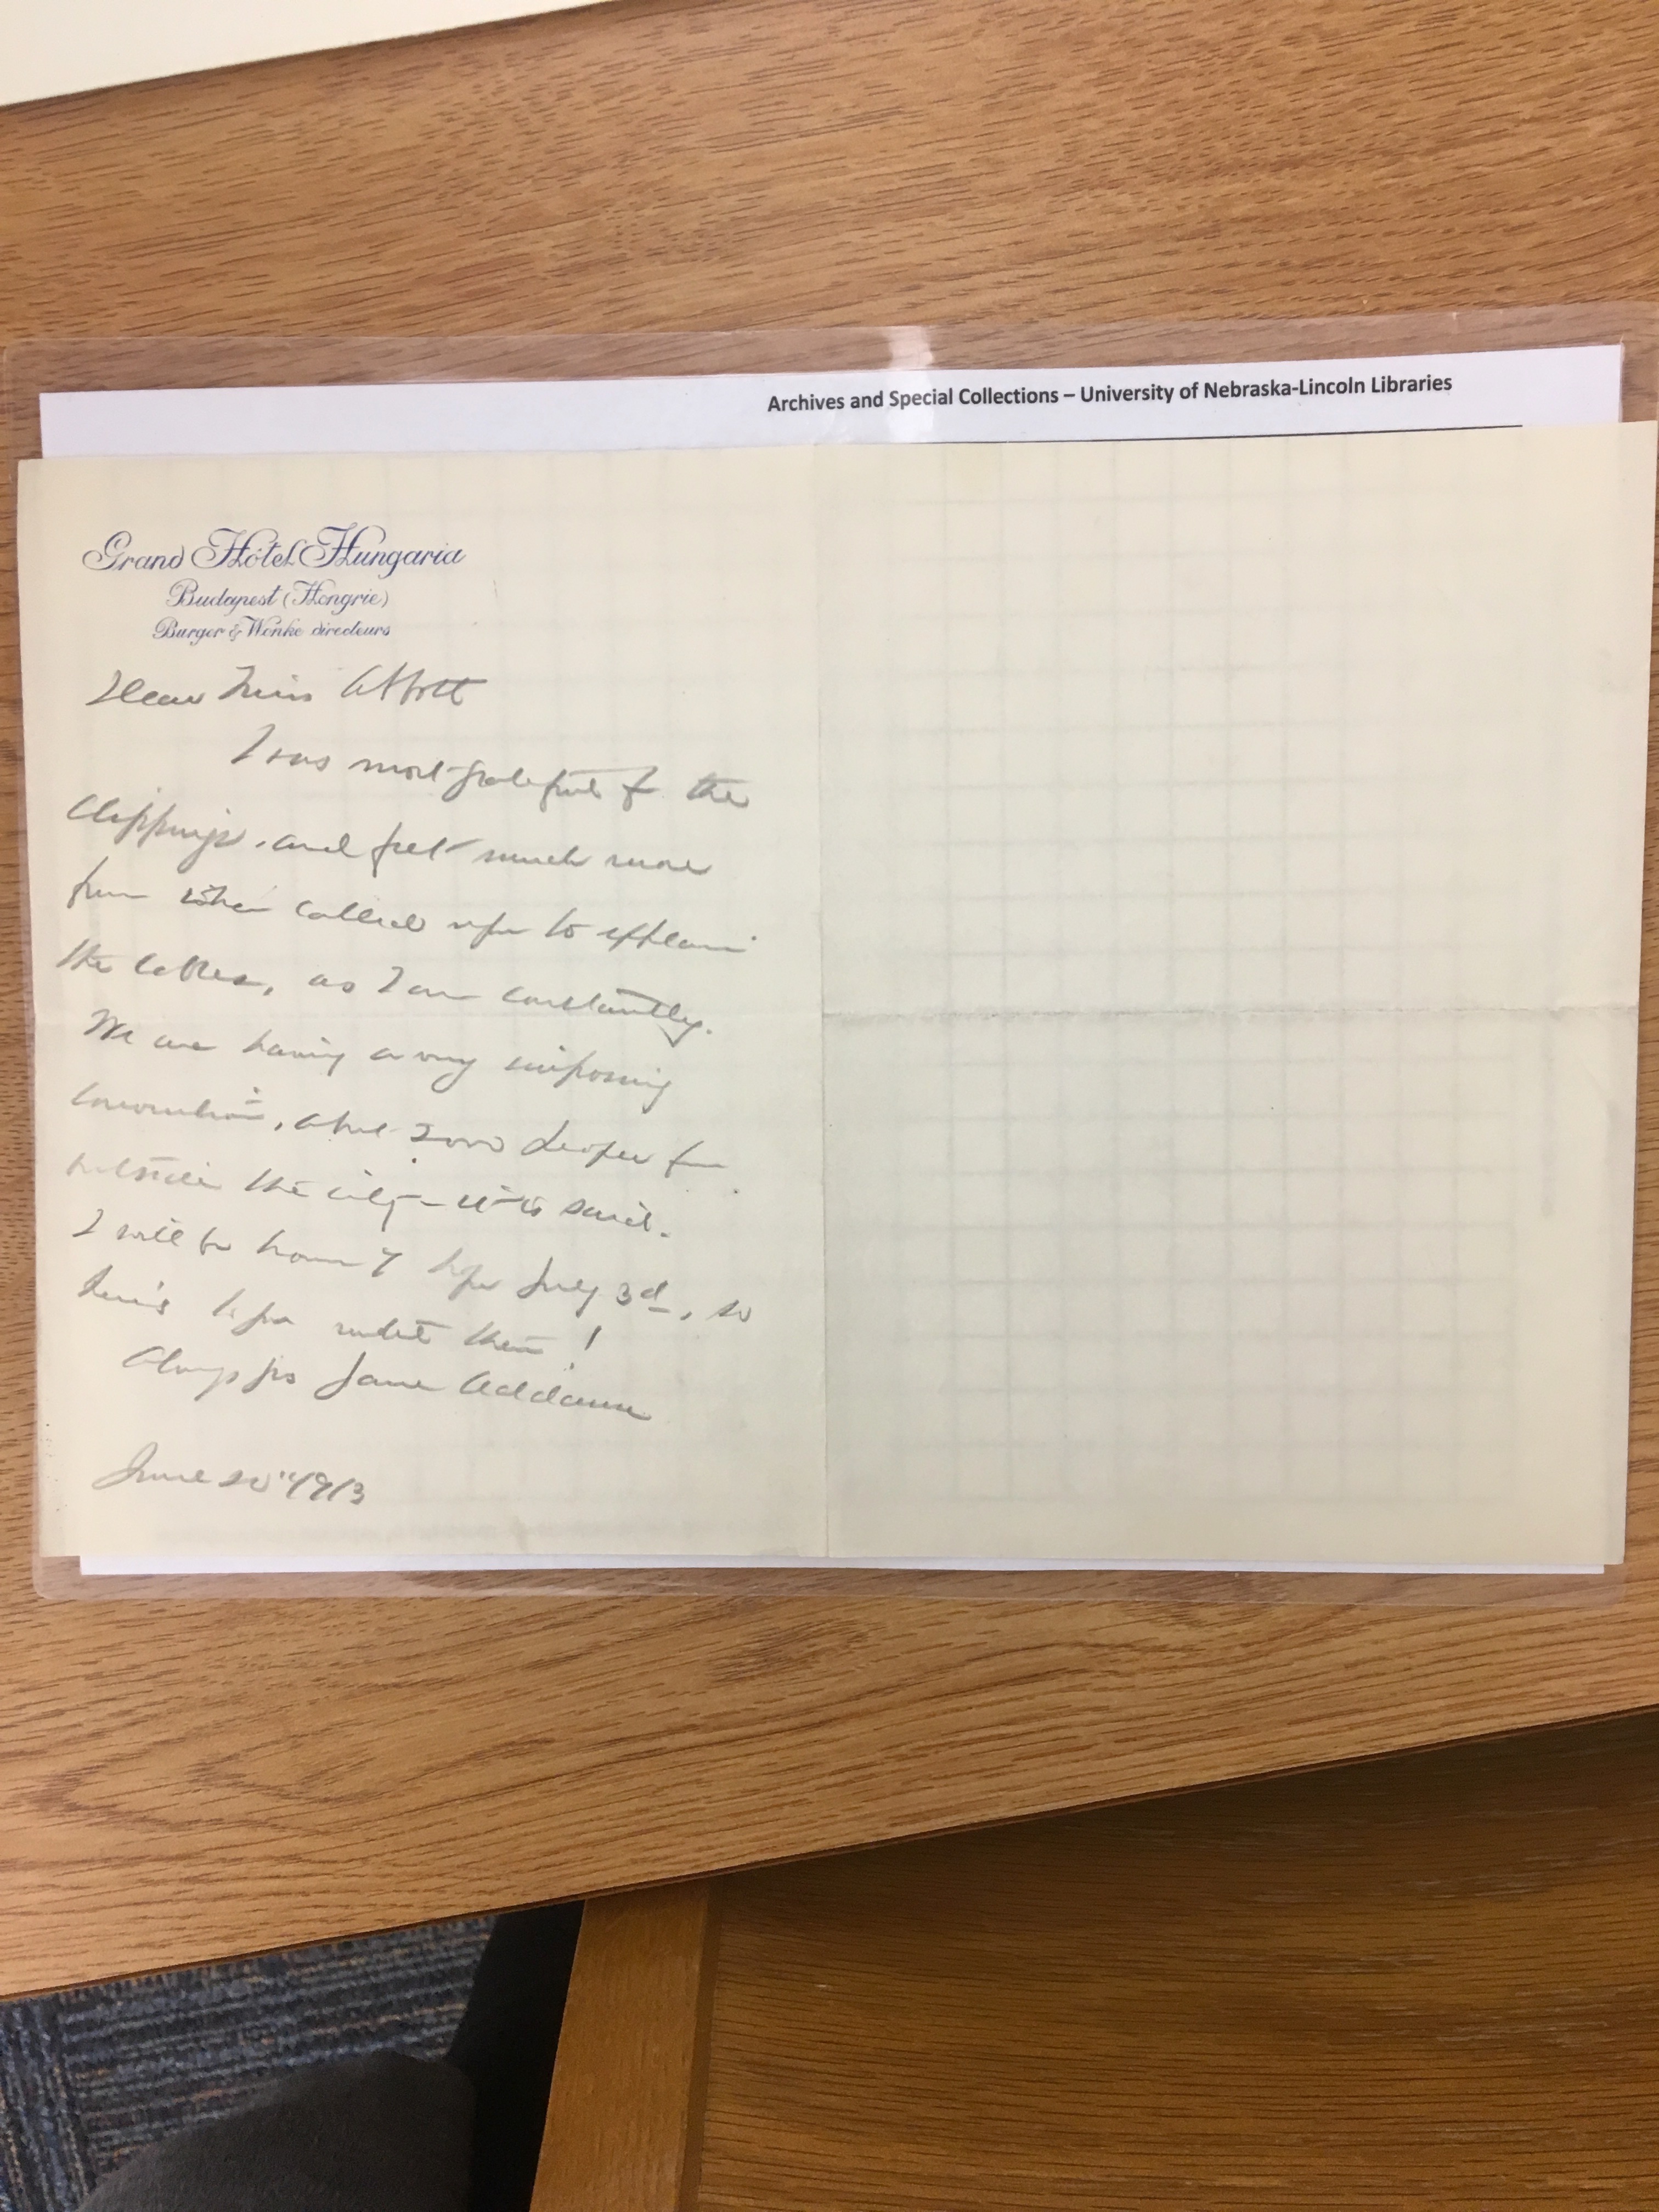 Archives and Special Collections – University of Nebraska-Lincoln Libraries
Grand Hôtel Hungaria
Budapest (Hongrie)
Burger & Wenke directeurs
Dear Miss Abbott
I was most grateful for the
clippings, and feel much more
firm when called upon to explain
the cables, as I am constantly.
We are having a very imposing
convention, about 2000 people from
outside the city it is said.
I will be home I hope July 3d, so
here's hope until then!
Always yrs Jane Addams
June 20" 1913